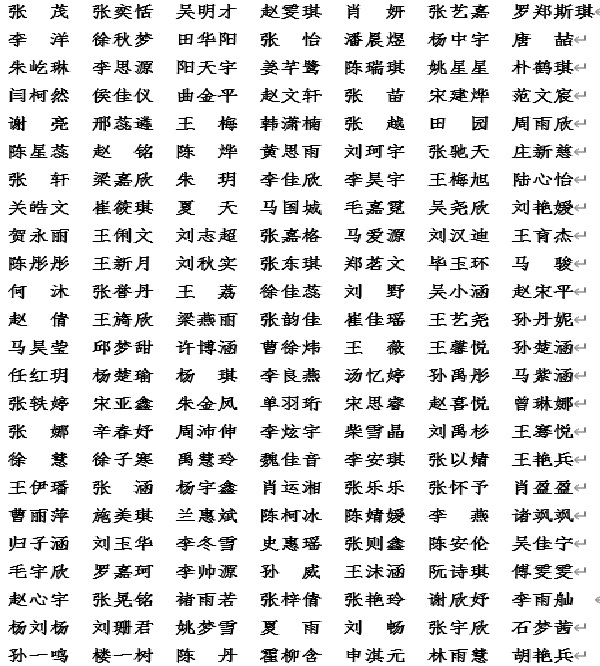 张　茂　张奕恬　吴明才　赵雯琪　肖　妍　张艺嘉　罗郑斯琪
李　洋　徐秋梦　田华阳　张　怡　潘晨煜　杨中宇　唐　喆
朱屹琳　李思源　阳天宇　姜芊鹭　陈瑞琪　姚星星　朴鹤琪
闫柯然　侯佳仪　曲金平　赵文轩　张　苗　宋建烨　范文宸
谢　亮　邢蕊遴　王　梅　韩潇楠　张　越　田　园　周雨欣
陈星蕊　赵　铭　陈　烨　黄思雨　刘珂宇　张驰天　庄新慈
张　轩　梁嘉欣　朱　玥　李佳欣　李昊宇　王梅旭　陆心怡
关皓文　崔筱琪　夏　天　马国城　毛嘉霓　吴尧欣　刘艳媛
贺永丽　王俐文　刘志超　张嘉格　马爱源　刘汉迪　王育杰
陈彤彤　王新月　刘秋实　张东琪　郑茗文　毕玉环　马　骏
何　沐　张誉丹　王　荔　徐佳蕊　刘　野　吴小涵　赵宋平
赵　倩　王旖欣　梁燕丽　张韵佳　崔佳瑶　王艺尧　孙丹妮
马昊莹　邱梦甜　许博涵　曹徐炜　王　薇　王馨悦　孙楚涵
任红玥　杨楚瑜　杨　琪　李良燕　汤忆婷　孙禹彤　马紫涵
张轶婷　宋亚鑫　朱金凤　单羽珩　宋思睿　赵喜悦　曾琳娜
张　娜　辛春妤　周沛伸　李炫宇　柴雪晶　刘禹杉　王骞悦
徐　慧　徐子寒　禹慧玲　魏佳音　李安琪　张以婧　王艳兵
王伊璠　张　涵　杨宇鑫　肖运湘　张乐乐　张怀予　肖盈盈
曹丽萍　施美琪　兰惠斌　陈柯冰　陈婧媛　李　燕　诸飒飒
归子涵　刘玉华　李冬雪　史惠瑶　张则鑫　陈安伦　吴佳宁
毛宇欣　罗嘉珂　李帅源　孙　威　王沫涵　阮诗琪　傅雯雯
赵心宇　张晃铭　褚雨若　张梓倩　张艳玲　谢欣妤　李雨舢
杨刘杨　刘珊君　姚梦雪　夏　雨　刘　畅　张宇欣　石梦茜
孙一鸣　楼一树　陈　丹　霍柳含　申淇元　林雨慧　胡艳兵